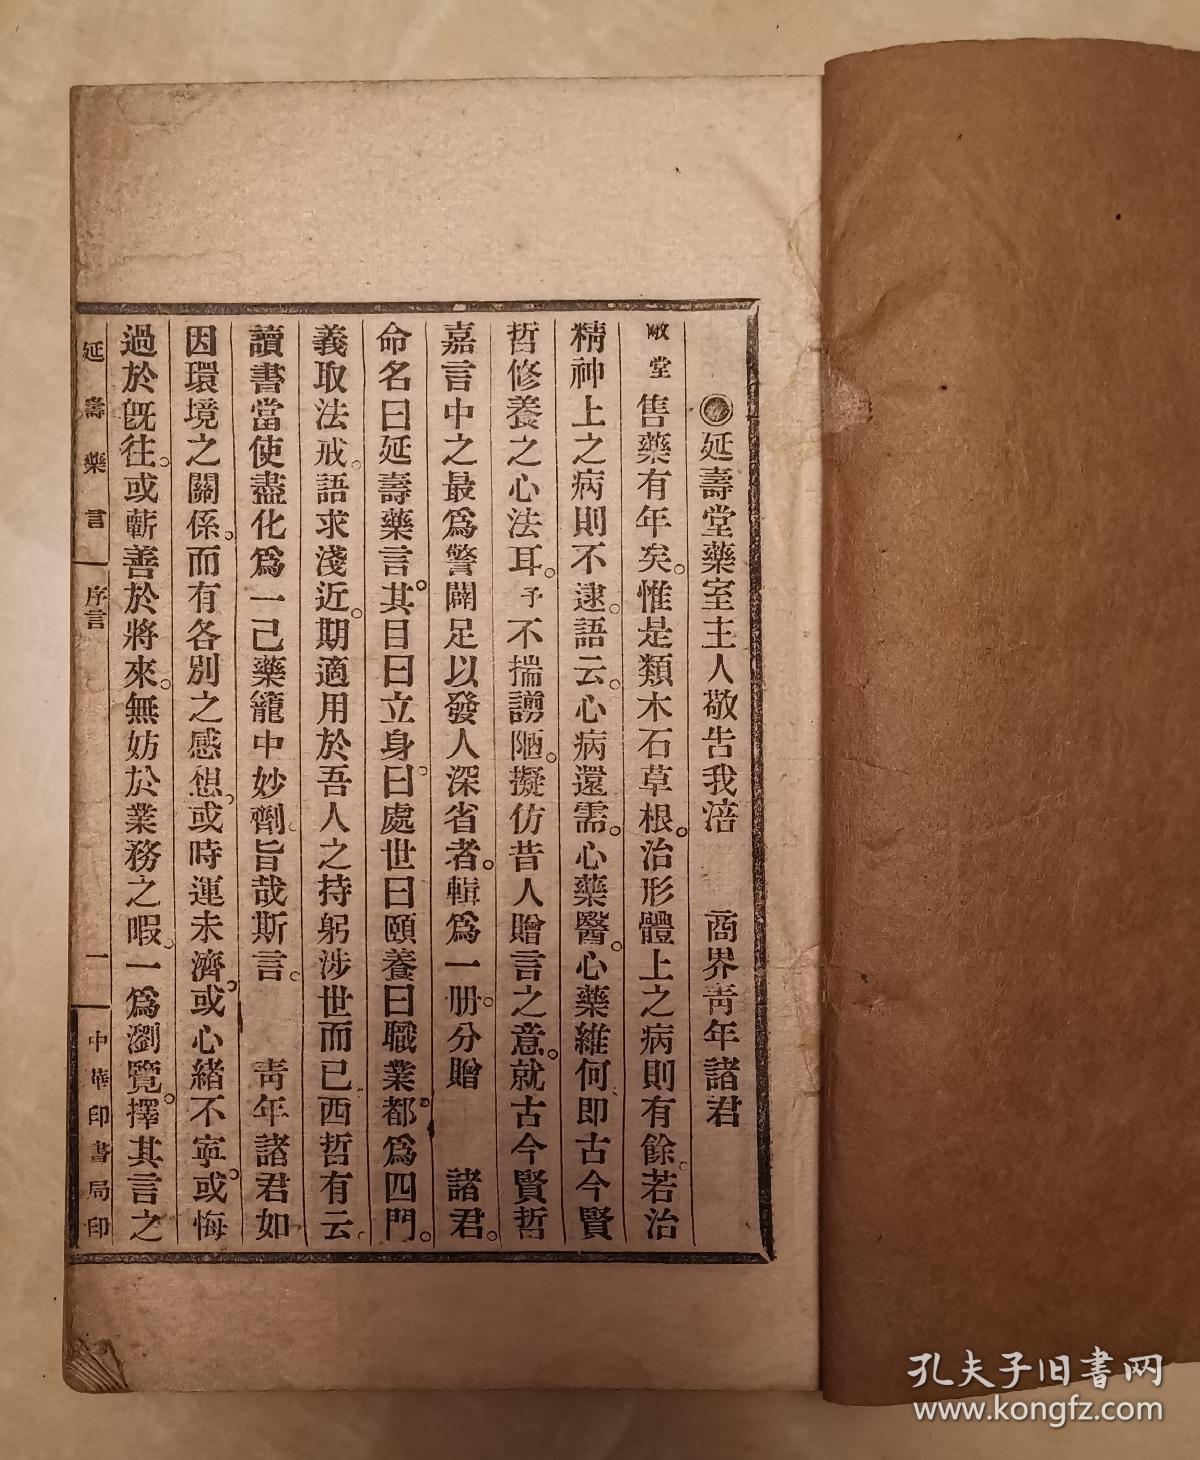 延壽堂藥室主人敬告我涪　商界靑年諸君
敝堂售藥有年矣。惟是類木石草根。治形體上之病則有餘。若治
精神上之病則不逮。語云。心病還需。心藥醫。心藥維何即古今賢
哲修養之心法耳。予不揣譾陋。擬仿昔人贈言之意。就古今賢哲
嘉言中之最爲警闢足以發人深省者。輯爲一册。分贈　諸君。
命名曰延壽藥言。其目曰立身。曰處世曰頤養曰職業。都爲四門。
義取法戒。語求淺近。期適用於吾人之持躬涉世而已西哲有云。
讀書當使盡化爲一己藥籠中妙劑。旨哉斯言。　靑年諸君如
因環境之關係。而有各別之感想。或時運未濟。或心緒不寧。或悔
過於旣往。或蘄善於將來。無妨於業務之暇。一爲瀏覽。擇其言之
延壽藥言
序言
一
中華印書局印
孔夫子旧书网
www.kongfz.com